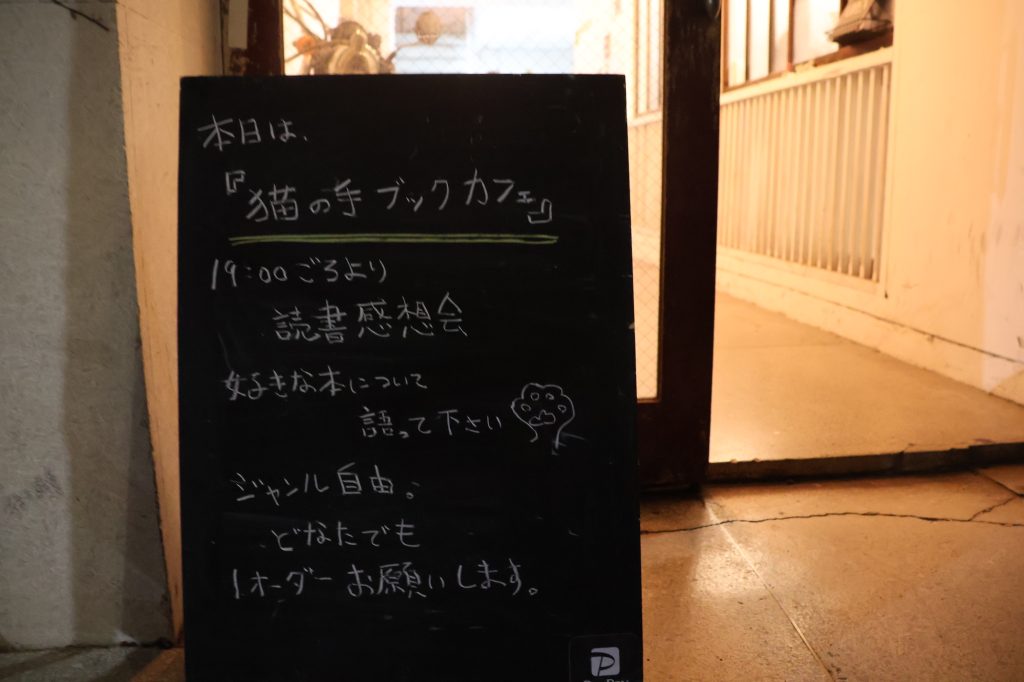 本日は、
『猫の手ブックカフェ』
19:00ごろより
読書感想会
好きな本について
語って下さい
ジャンル自由。
どなたでも
1オーダーお願いします。